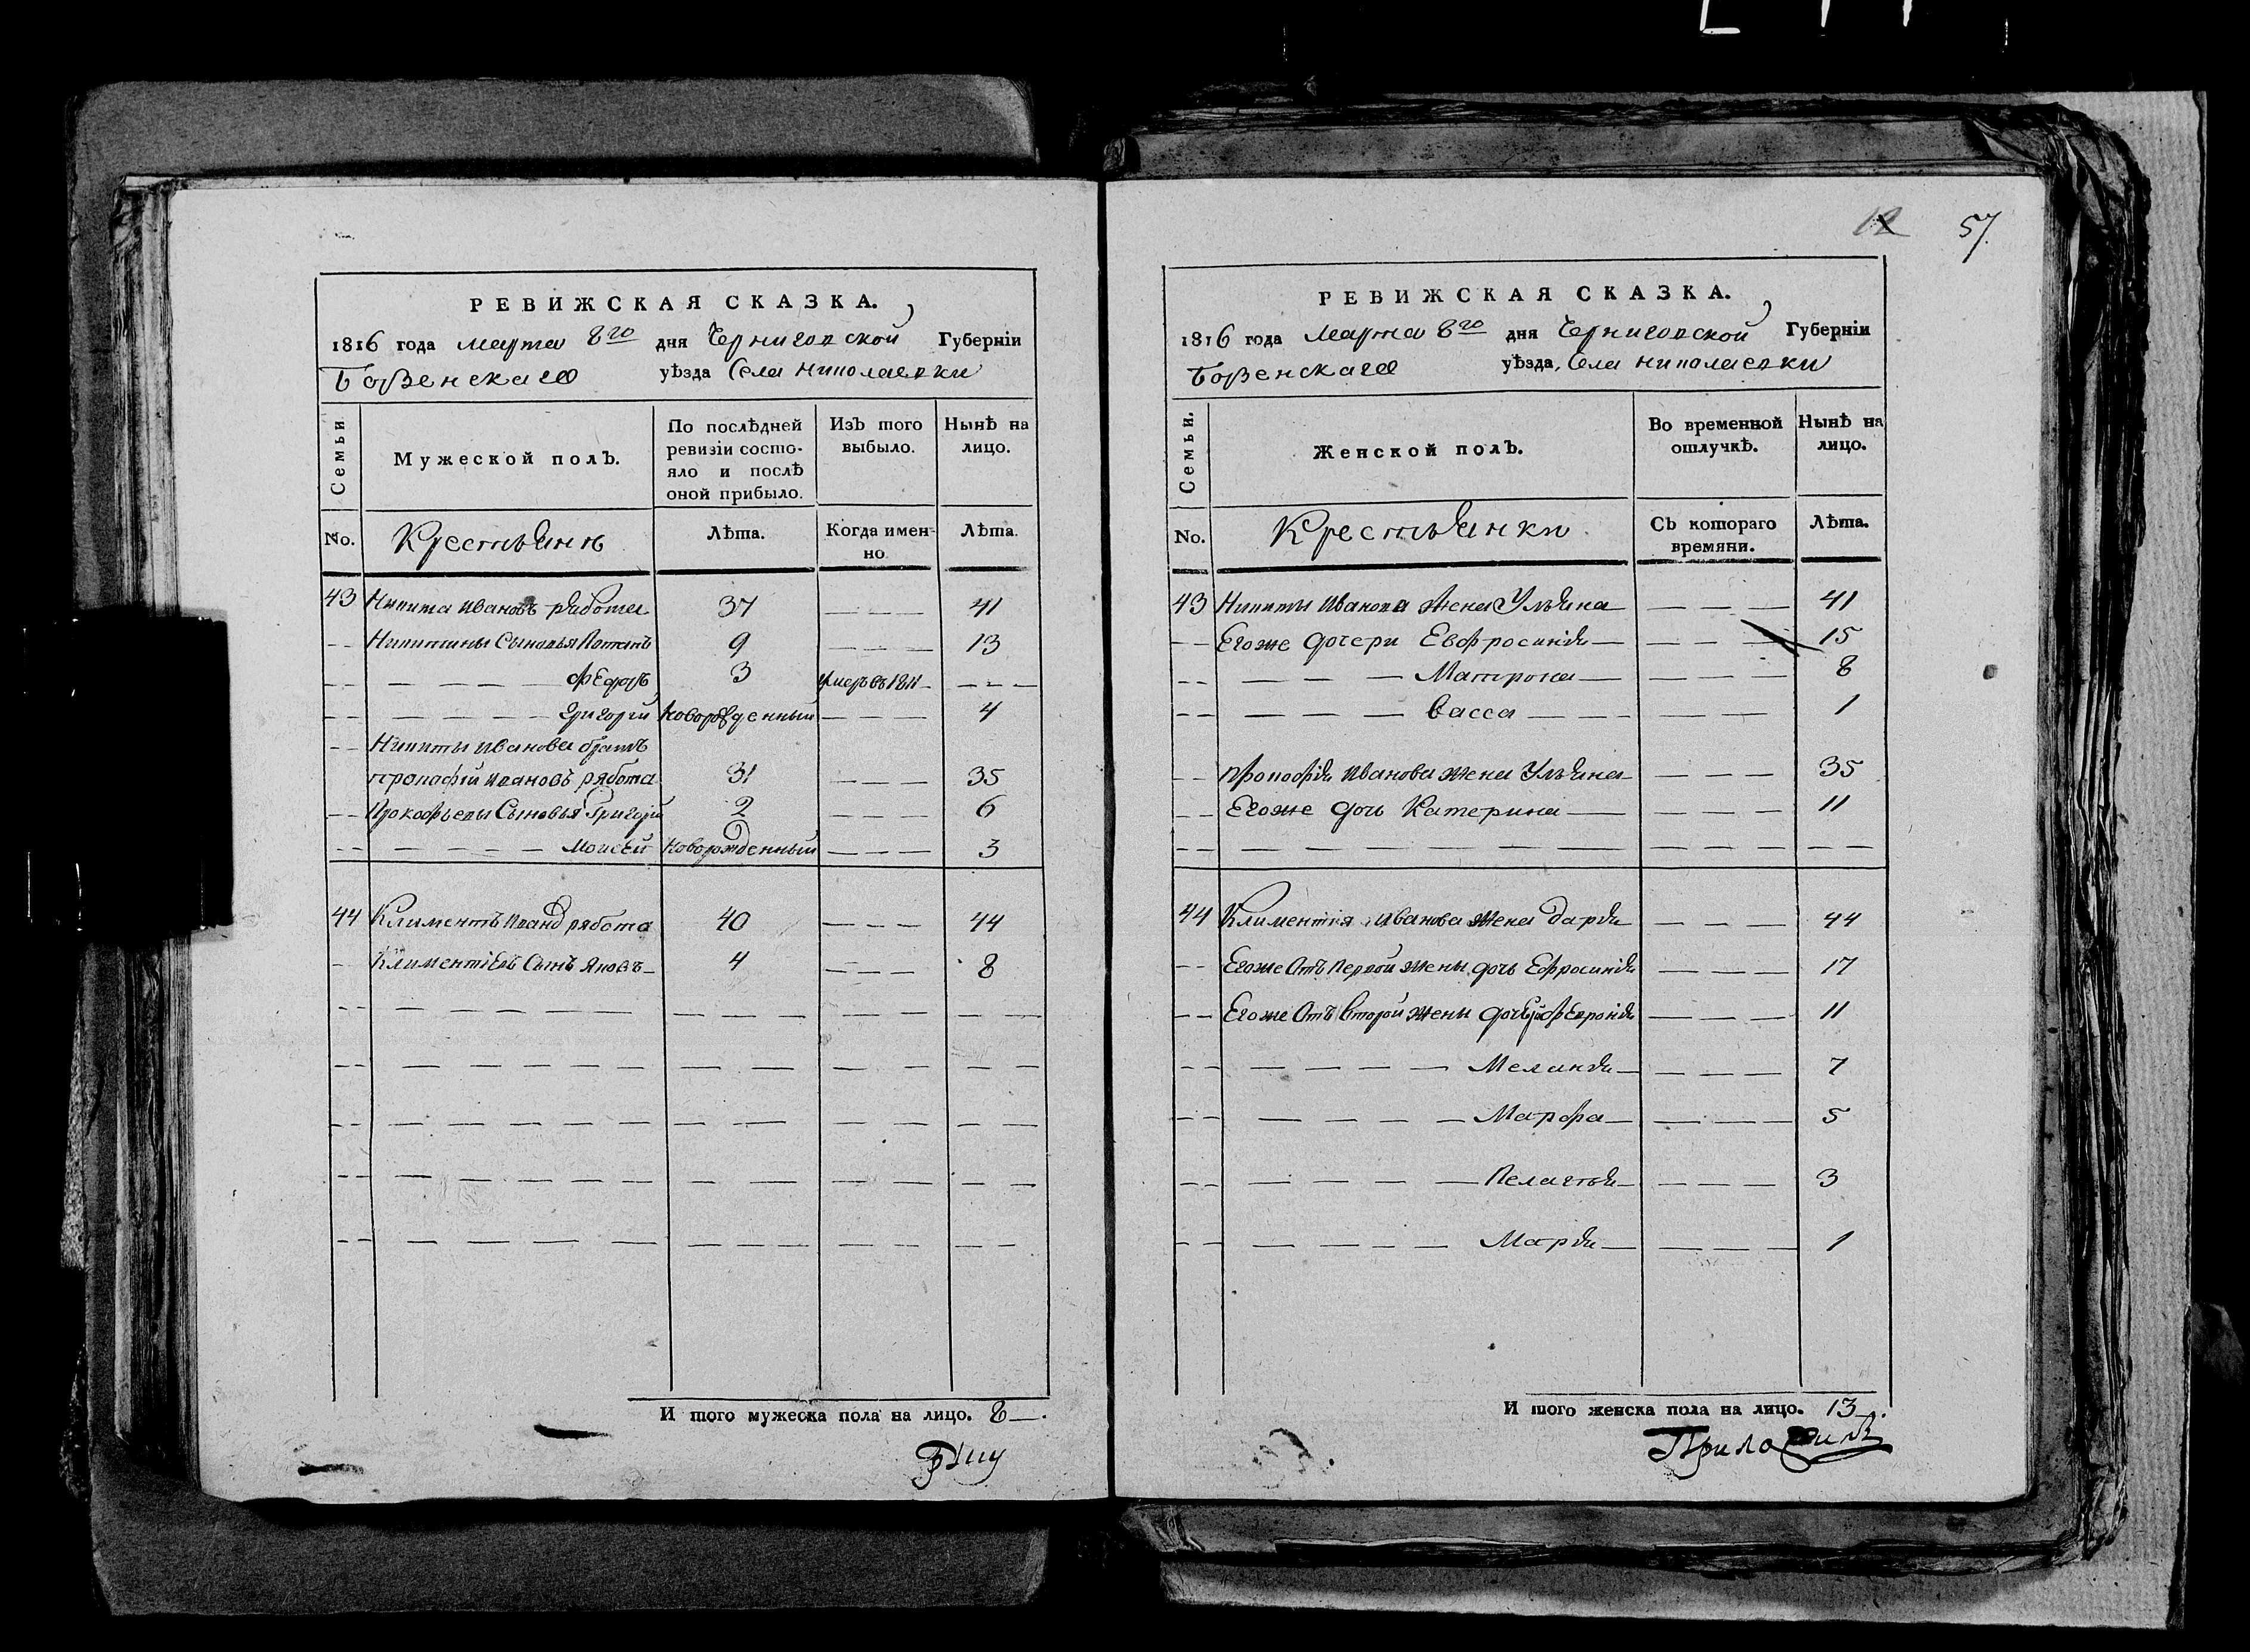 РЕВИЖСКАЯ СКАЗКА.
1816 года марта 8го дня Черниговской Губерніи
Борзенскаго уѣзда Села Николаевки
Семьи
Мужеской полъ.
По послѣдней ревизіи состо-
яло и послѣ оной прибыло.
Изъ того выбыло.
Нынѣ на лицо.
No.
Крестьянъ
Лѣта.
Когда имен-
но
Лѣта.
43 Никита Ивановъ рябота 37 — — — 41
— — Никитины Сыновья Потапъ 9 — — — 13
— — — — — — Федоръ 3 умеръ въ 1811 — — — —
— — — — — — Григорій Новорожденный — — — 4
— — Никиты Иванова братъ
прокофій Ивановъ рябота 31 — — — 35
— — Прокофьевы Сыновья Григорій 2 — — — 6
— — — — — — Моисей Новорожденный — — — 3
44 Климентъ рябота 40 — — — 44
— Климентіевъ Сынъ Яковъ — 4 — — — 8
И того мужеска пола на лицо. 8 —.
12 57
РЕВИЖСКАЯ СКАЗКА.
1816 года Марта 8го дня Черниговской Губерніи
Борзенскаго уѣзда, Села Николаевки
Семьи.
Женской полъ.
Во временной отлучкѣ.
Нынѣ на лицо.
No.
Крестьянки
Съ котораго времяни.
Лѣта.
43 Никиты Иванова жена Ульяна — — — — 41
— — Егоже дочери Евфросинія — — — — 15
— — — — — Матрона — — — — — 8
— — — — — Васса — — — — — 1
— — Прокофія Иванова жена Ульяна — — — — 35
— — Егоже дочь Катерина — — — — 11
44 Климентія Иванова жена дарья — — — 44
— — Егоже Отъ Первой жены дочь Ефросинія — — — 17
— — Егоже Отъ Второй жены Февронія — — — 11
— — — — — — Меланья — — — — 7
— — — — — — Марфа — — — — 5
— — — — — — Пелагѣя — — — — 3
— — — — — — Марья — — — — 1
И того женска пола на лицо. 13 —.
Приложилъ